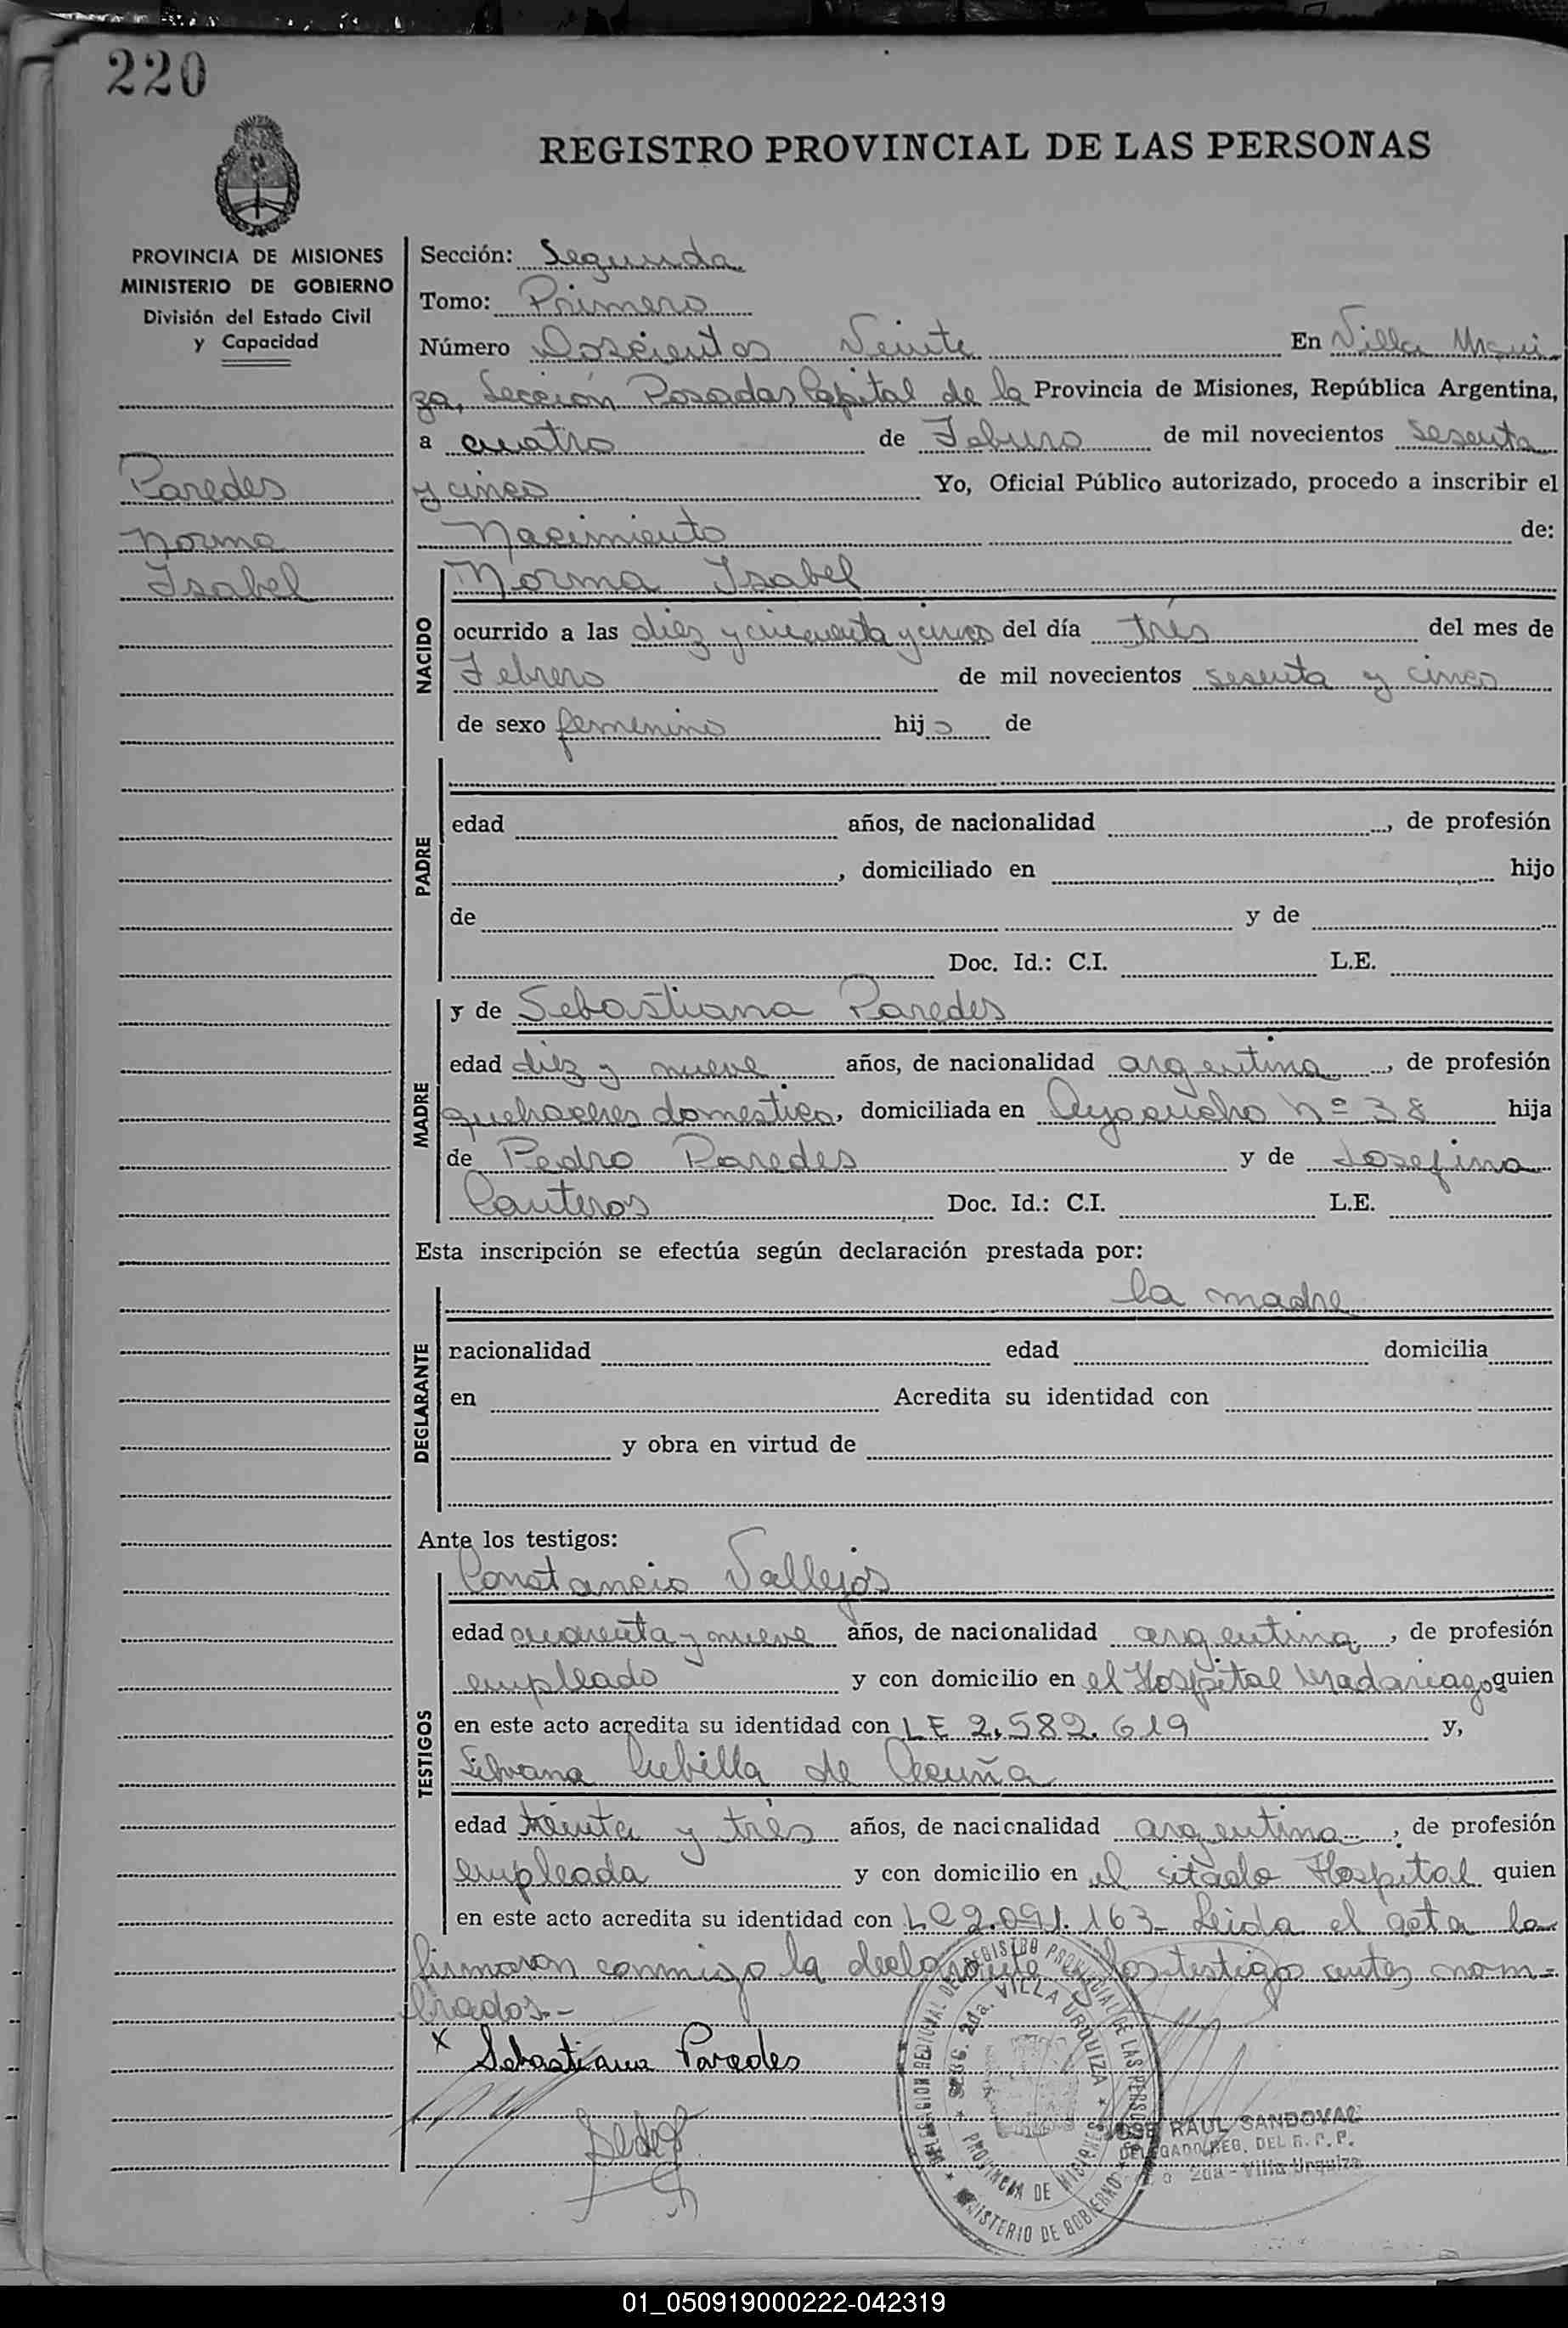 220
REGISTRO PROVINCIAL DE LAS PERSONAS
PROVINCIA DE MISIONES
MINISTERIO DE GOBIERNO
División del Estado Civil
y Capacidad
Paredes
Norma
Isabel
Sección: Segunda
Tomo: Primero
Número Doscientos Veinte En Villa Urqui
za, Sección Posadas Capital de la Provincia de Misiones, República Argentina,
a cuatro de Febrero de mil novecientos sesenta
y cinco Yo, Oficial Público autorizado, procedo a inscribir el
Nacimiento de:
NACIDO
Norma Isabel
ocurrido a las diez y cincuenta y cinco del día trés del mes de
Febrero de mil novecientos sesenta y cinco
de sexo femenino hija de
PADRE
edad años, de nacionalidad , de profesión
, domiciliado en hijo
de y de
Doc. Id.: C.I. L.E.
MADRE
y de Sebastiana Paredes
edad diez y nueve años, de nacionalidad argentina, de profesión
quehaceres domestico, domiciliada en Ayacucho Nº 38 hija
de Pedro Paredes y de Josefina
Canteros Doc. Id.: C.I. L.E.
Esta inscripción se efectúa según declaración prestada por:
DECLARANTE
la madre
nacionalidad edad domicilia
en Acredita su identidad con
y obra en virtud de
Ante los testigos:
TESTIGOS
Constancio Vallejos
edad cuarenta y nueve años, de nacionalidad argentina, de profesión
empleado y con domicilio en el Hospital Madariaga quien
en este acto acredita su identidad con LE 2.582.619 y,
Silvana Cubilla de Acuña
edad treinta y trés años, de nacionalidad argentina, de profesión
empleada y con domicilio en el sitado Hospital quien
en este acto acredita su identidad con LC 2.091.163- Leida el acta la
firmaron conmigo la declarante y los testigos antes nom=
brados.-
x Sebastiana Paredes
DELEGACION REGIONAL DEL REGISTRO PROVINCIAL DE LAS PERSONAS
SECC. 2da. VILLA URQUIZA
PROVINCIA DE MISIONES
MINISTERIO DE GOBIERNO
JOSE RAUL SANDOVAL
DELEGADO REG. DEL R. P. P.
2da - Villa Urquiza
01_050919000222-042319